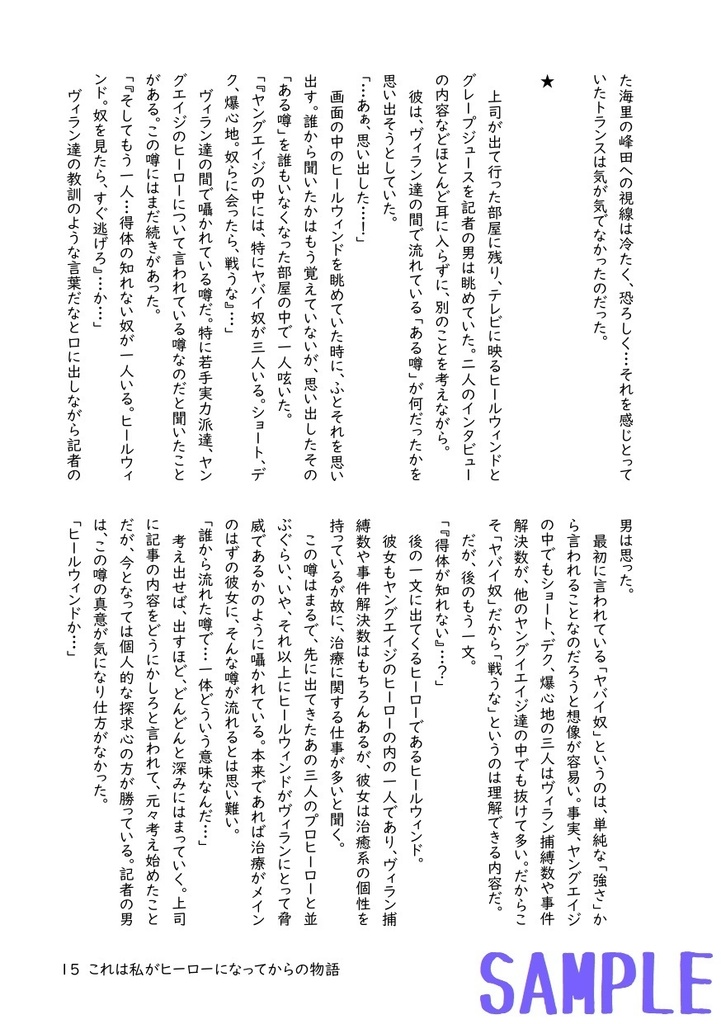 た海里の峰田への視線は冷たく、恐ろしく…それを感じとって
いたトランスは気が気でなかったのだった。
★
上司が出て行った部屋に残り、テレビに映るヒールウィンドと
グレープジュースを記者の男は眺めていた。二人のインタビュー
の内容などほとんど耳に入らずに、別のことを考えながら。
彼は、ヴィラン達の間で流れている「ある噂」が何だったかを
思い出そうとしていた。
「…あぁ、思い出した…！」
画面の中のヒールウィンドを眺めていた時に、ふとそれを思い
出す。誰から聞いたかはもう覚えていないが、思い出したその
「ある噂」を誰もいなくなった部屋の中で一人呟いた。
「『ヤングエイジの中には、特にヤバイ奴が三人いる。ショート、デ
ク、爆心地。奴らに会ったら、戦うな』…」
ヴィラン達の間で囁かれている噂だ。特に若手実力派達、ヤン
グエイジのヒーローについて言われている噂なのだと聞いたこと
がある。この噂にはまだ続きがあった。
「『そしてもう一人…得体の知れない奴が一人いる。ヒールウィ
ンド。奴を見たら、すぐ逃げろ』…か…」
ヴィラン達の教訓のような言葉だなと口に出しながら記者の
男は思った。
最初に言われている「ヤバイ奴」というのは、単純な「強さ」か
ら言われることなのだろうと想像が容易い。事実、ヤングエイジ
の中でもショート、デク、爆心地の三人はヴィラン捕縛数や事件
解決数が、他のヤングイエイジ達の中でも抜けて多い。だからこ
そ「ヤバイ奴」だから「戦うな」というのは理解できる内容だ。
だが、後のもう一文。
「『得体が知れない』…？」
後の一文に出てくるヒーローであるヒールウィンド。
彼女もヤングエイジのヒーローの内の一人であり、ヴィラン捕
縛数や事件解決数はもちろんあるが、彼女は治癒系の個性を
持っているが故に、治療に関する仕事が多いと聞く。
この噂はまるで、先に出てきたあの三人のプロヒーローと並
ぶぐらい、いや、それ以上にヒールウィンドがヴィランにとって脅
威であるかのように囁かれている。本来であれば治療がメイン
のはずの彼女に、そんな噂が流れるとは思い難い。
「誰から流れた噂で…一体どういう意味なんだ…」
考え出せば、出すほど、どんどんと深みにはまっていく。上司
に記事の内容をどうにかしろと言われて、元々考え始めたこと
だが、今となっては個人的な探求心の方が勝っている。記者の男
は、この噂の真意が気になり仕方がなかった。
「ヒールウィンドか…」
15 これは私がヒーローになってからの物語
SAMPLE